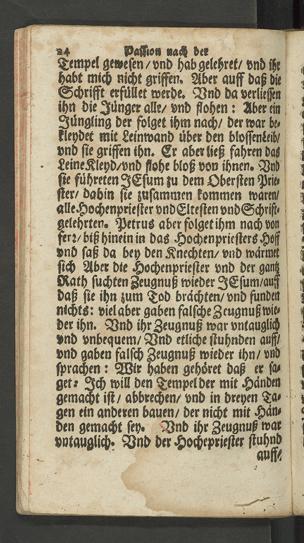 24 Passion nach der
Tempel gewesen/ vnd hab gelehret/ vnd ihr
habt mich nicht griffen. Aber auff daß die
Schrifft erfüllet werde. Vnd da verliessen
ihn die Jünger alle/ vnd flohen: Aber ein
Jüngling der folget ihm nach/ der war be-
kleydet mit Leinwand über den blossenLeib/
vnd sie griffen ihn. Er aber ließ fahren das
LeineKleyd/vnd flohe bloß von ihnen. Vnd
sie führeten JEsum zu dem Obersten Prie-
ster/ dahin sie zusammen kommen waren/
alle Hochenpriester vnd Eltesten vnd Schrifft-
gelehrten. Petrus aber folget ihm nach von
ferz/ biß hinein in das Hochenpriesters Hoff
vnd saß da bey den Knechten/ vnd wärmet
sich Aber die Hochenpriester vnd der gantz
Rath suchten Zeugnuß wieder JEsum/auff
daß sie ihn zum Tod brächten/ vnd funden
nichts: viel aber gaben falsche Zeugnuß wie-
der ihn. Vnd ihr Zeugnuß war vntauglich
vnd vnbequem/ Vnd etliche stuhnden auff/
vnd gaben falsch Zeugnuß wieder ihn/ vnd
sprachen: Wir haben gehöret daß er sa-
get: Ich will den Tempel der mit Händen
gemacht ist/ abbrechen/ vnd in dreyen Ta-
gen ein anderen bauen/ der nicht mit Hän-
den gemacht sey. Vnd ihr Zeugnuß war
vntauglich. Vnd der Hochepriester stuhnd
auff/